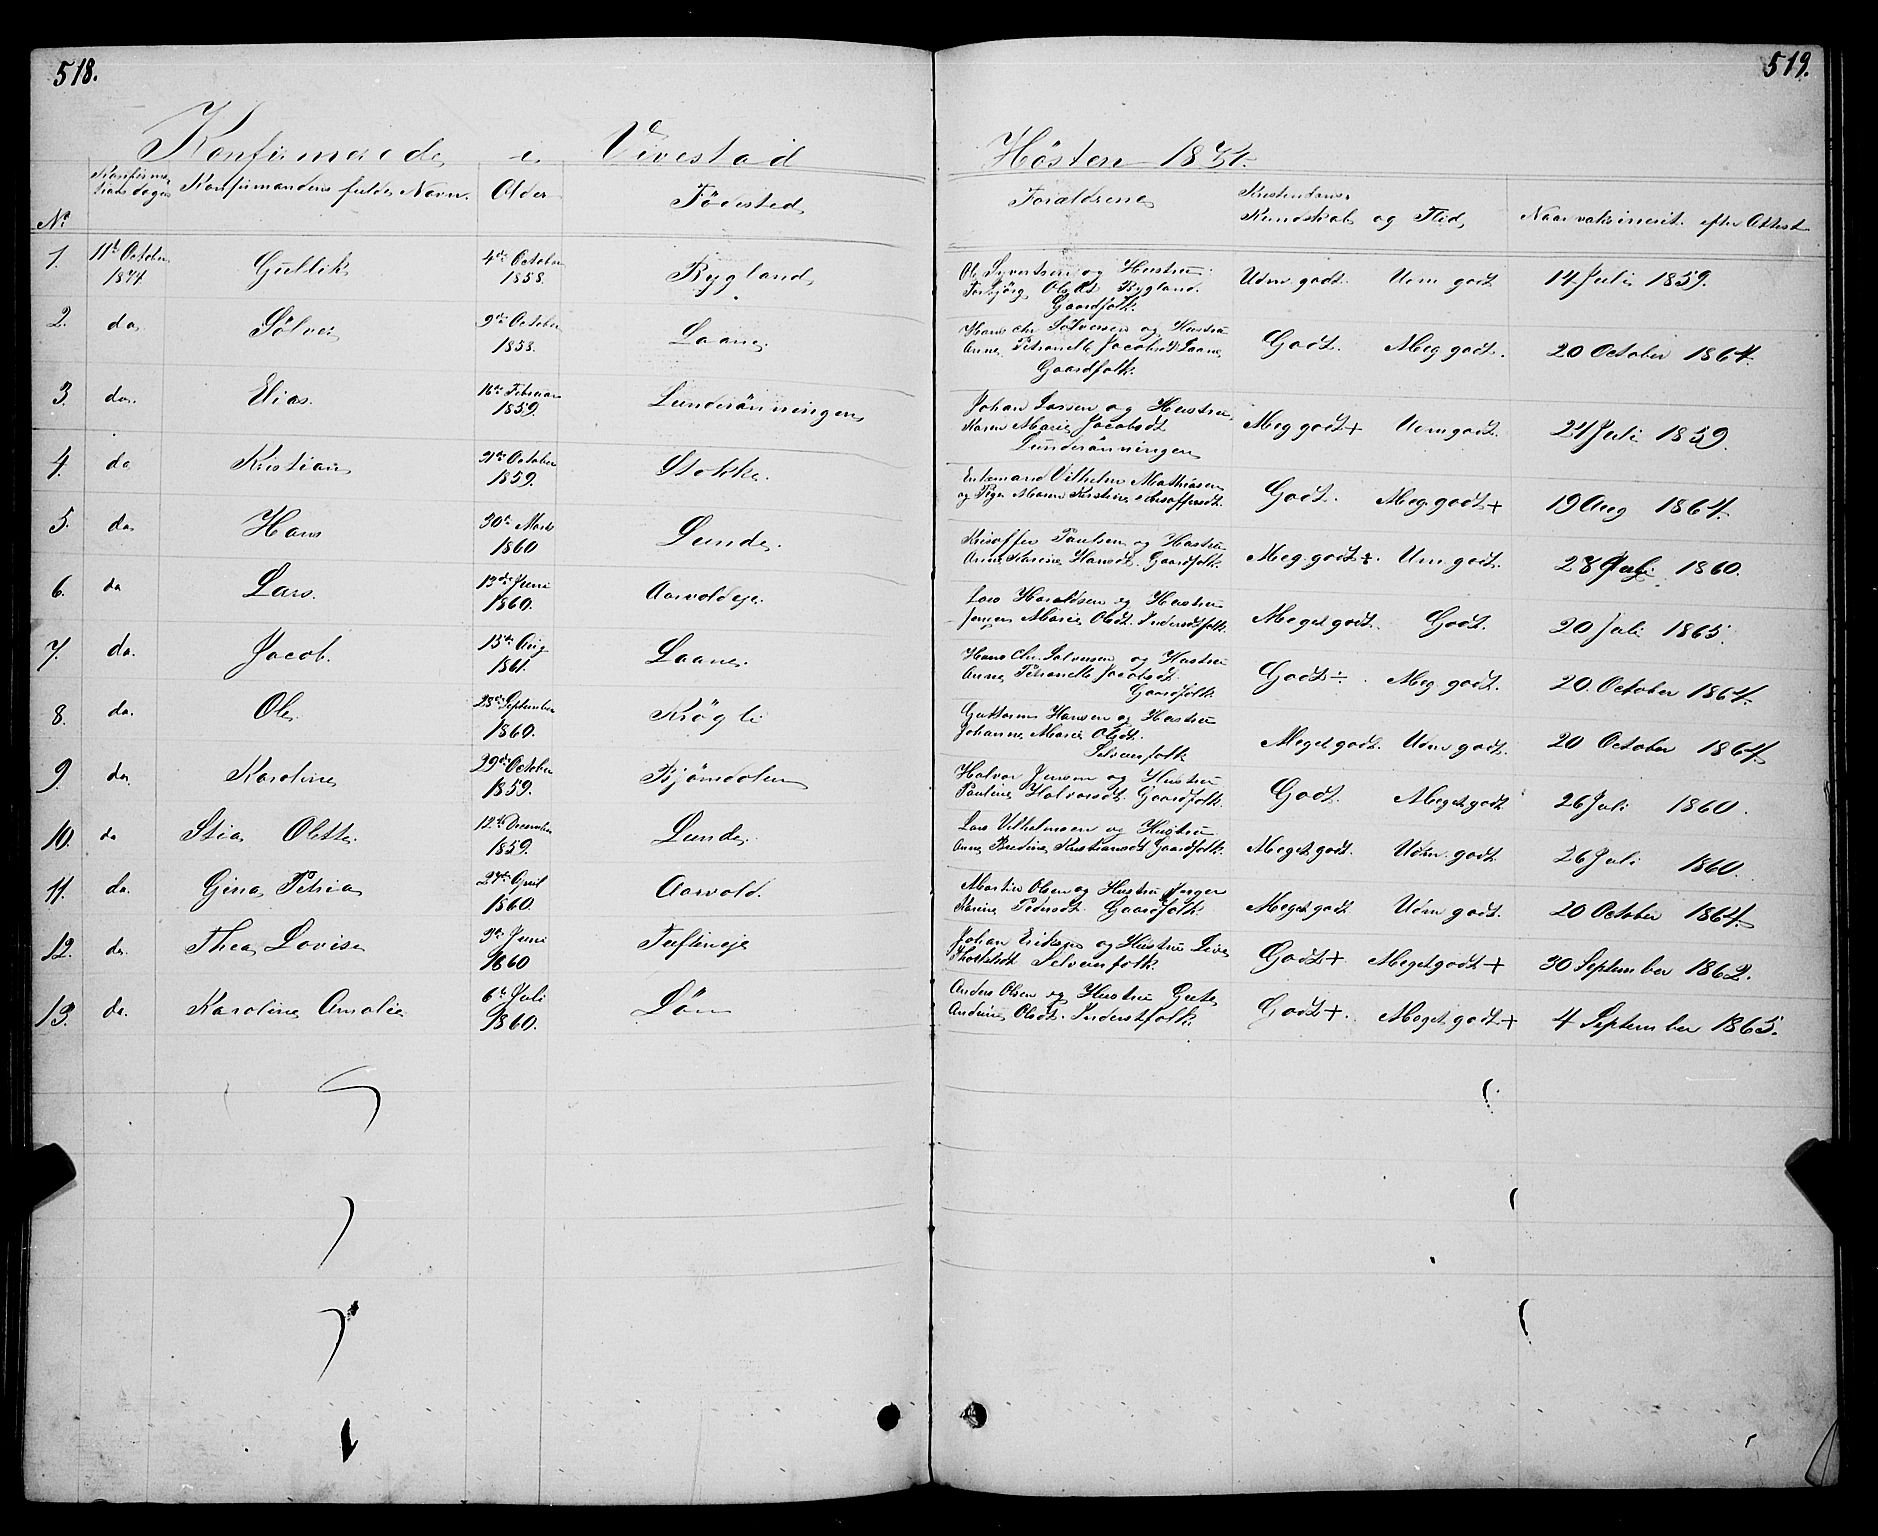 518.
519.
Konfirmerede i Vivestad
Høsten 1874.
No
Konfirma-
tions dagen
Konfirmandens fulde Navn.
Alder
Fødested
Forældrene
Kristendoms-
Kundskab og Flid,
Naar vaksineret efter Attest
1. 11te October 1874. Gullik 4de October 1858. Bygland Ole Syvertsen og Hustru Torbjørg Olsdt Bygland. Gaardfolk. Udm godt. Udm godt 14 Juli 1859.
2. do Sølver 9de October 1858. Laane. Hans Chr Sølversen og Hustru Anne Petronelle Jacobsdt Laane Gaardfolk. Godt. Meg godt. 20 October 1864.
3. do. Elias. 16de Februar 1859. Lunderønningen Johan Larsen og Hustru Karen Marie Jacobsdt Lunderønningen Meg godt + Udm godt. 24 Juli 1859.
4. do Kristian October 1859. Stokke. Enkemand Vilhelm Mathiasen og Pige Maren Kristine Krisoffersdt. Godt. Meg. godt + 19 Aug 1864.
5. do. Hans 30te Marts 1860 Lunde. Krisoffer Paulsen og Hustru Anne Karine Hansdt. Gaardfolk. Meg. godt ÷. Udm godt. 28 Juli 1860.
6. do Lars. 13de Juni 1860. Aarvoldeje. Lars Haraldsen og Hustru Marie Olsdt. Inderstfolk. Meget godt. Godt. 20 Juli 1865.
7. do. Jacob. 15de Aug 1861. Laane. Hans Chr. Sølversen og Hustru Anne Petronelle Jacobsdt. Gaardfolk. Godt ÷. Meg godt. 20. October 1864.
8. do. Ole. 28de September 1860. Krøgli Guttorm Hansen og Hustru Johanne Marie Olsdt. Selveierfolk Meget godt. Udm godt. 20 October 1864.
9. do. Karoline 29de October 1859. Bjørndalen Halvor Jensen og Hustru Pauline Halvorsdt. Gaardfolk. Godt. Meget godt 26 Juli 1860.
10. do Stia Olette. 12te December 1859. Lunde. Lars Vilhelmsen og Hustru Anne Bredine Kristiansdt Gaardfolk. Meget godt. Udm godt 26 Juli 1860.
11. do. Gina Petria 27de April 1860. Aarvold. Martin Olsen og Hustru Inger Karine Pedersdt. Gaardfolk. Meget godt Udm godt. 20 October 1864.
12. do. Thea Lovise 3de Juni 1860 Tufteneje Johan Eriksen og Hustru Live Selveierfolk. Godt + Meget godt + 30 September 1862.
13. do. Karoline Amalie 6te Juli 1860. Døn Anders Olsen og Hustru Grete Andrine Olsdt. Inderstfolk. Godt +. Meget godt + 4 September 1865.